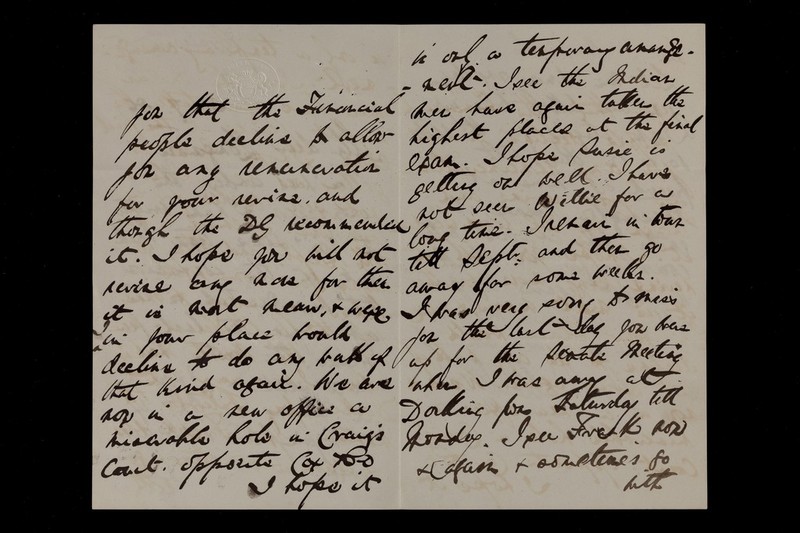 you that the Financial
people decline to allow
you any remuneration
for your revise. and
though the DG recommended
it. I hope you will not
revise any more for them
it is most mean, & were
I in your place would
decline to do any work of
that kind again. We are
now in a new office a
miserable hole in Craig's
Court. opposite Cox & Co
I hope it
is only a temporary arrange-
-ment. I see the Indian
men have again taken the
highest places at the final
exam. I hope Susie is
getting on well. I have
not seen Willie for a
long time. I remain in town
till Sept. and then go
away for some weeks.
I was very sorry to miss
you the last day you were
up for the Senate Meeting
when I was away at
Dorking from Saturday till
Monday. I see now
& again & sometimes go
with